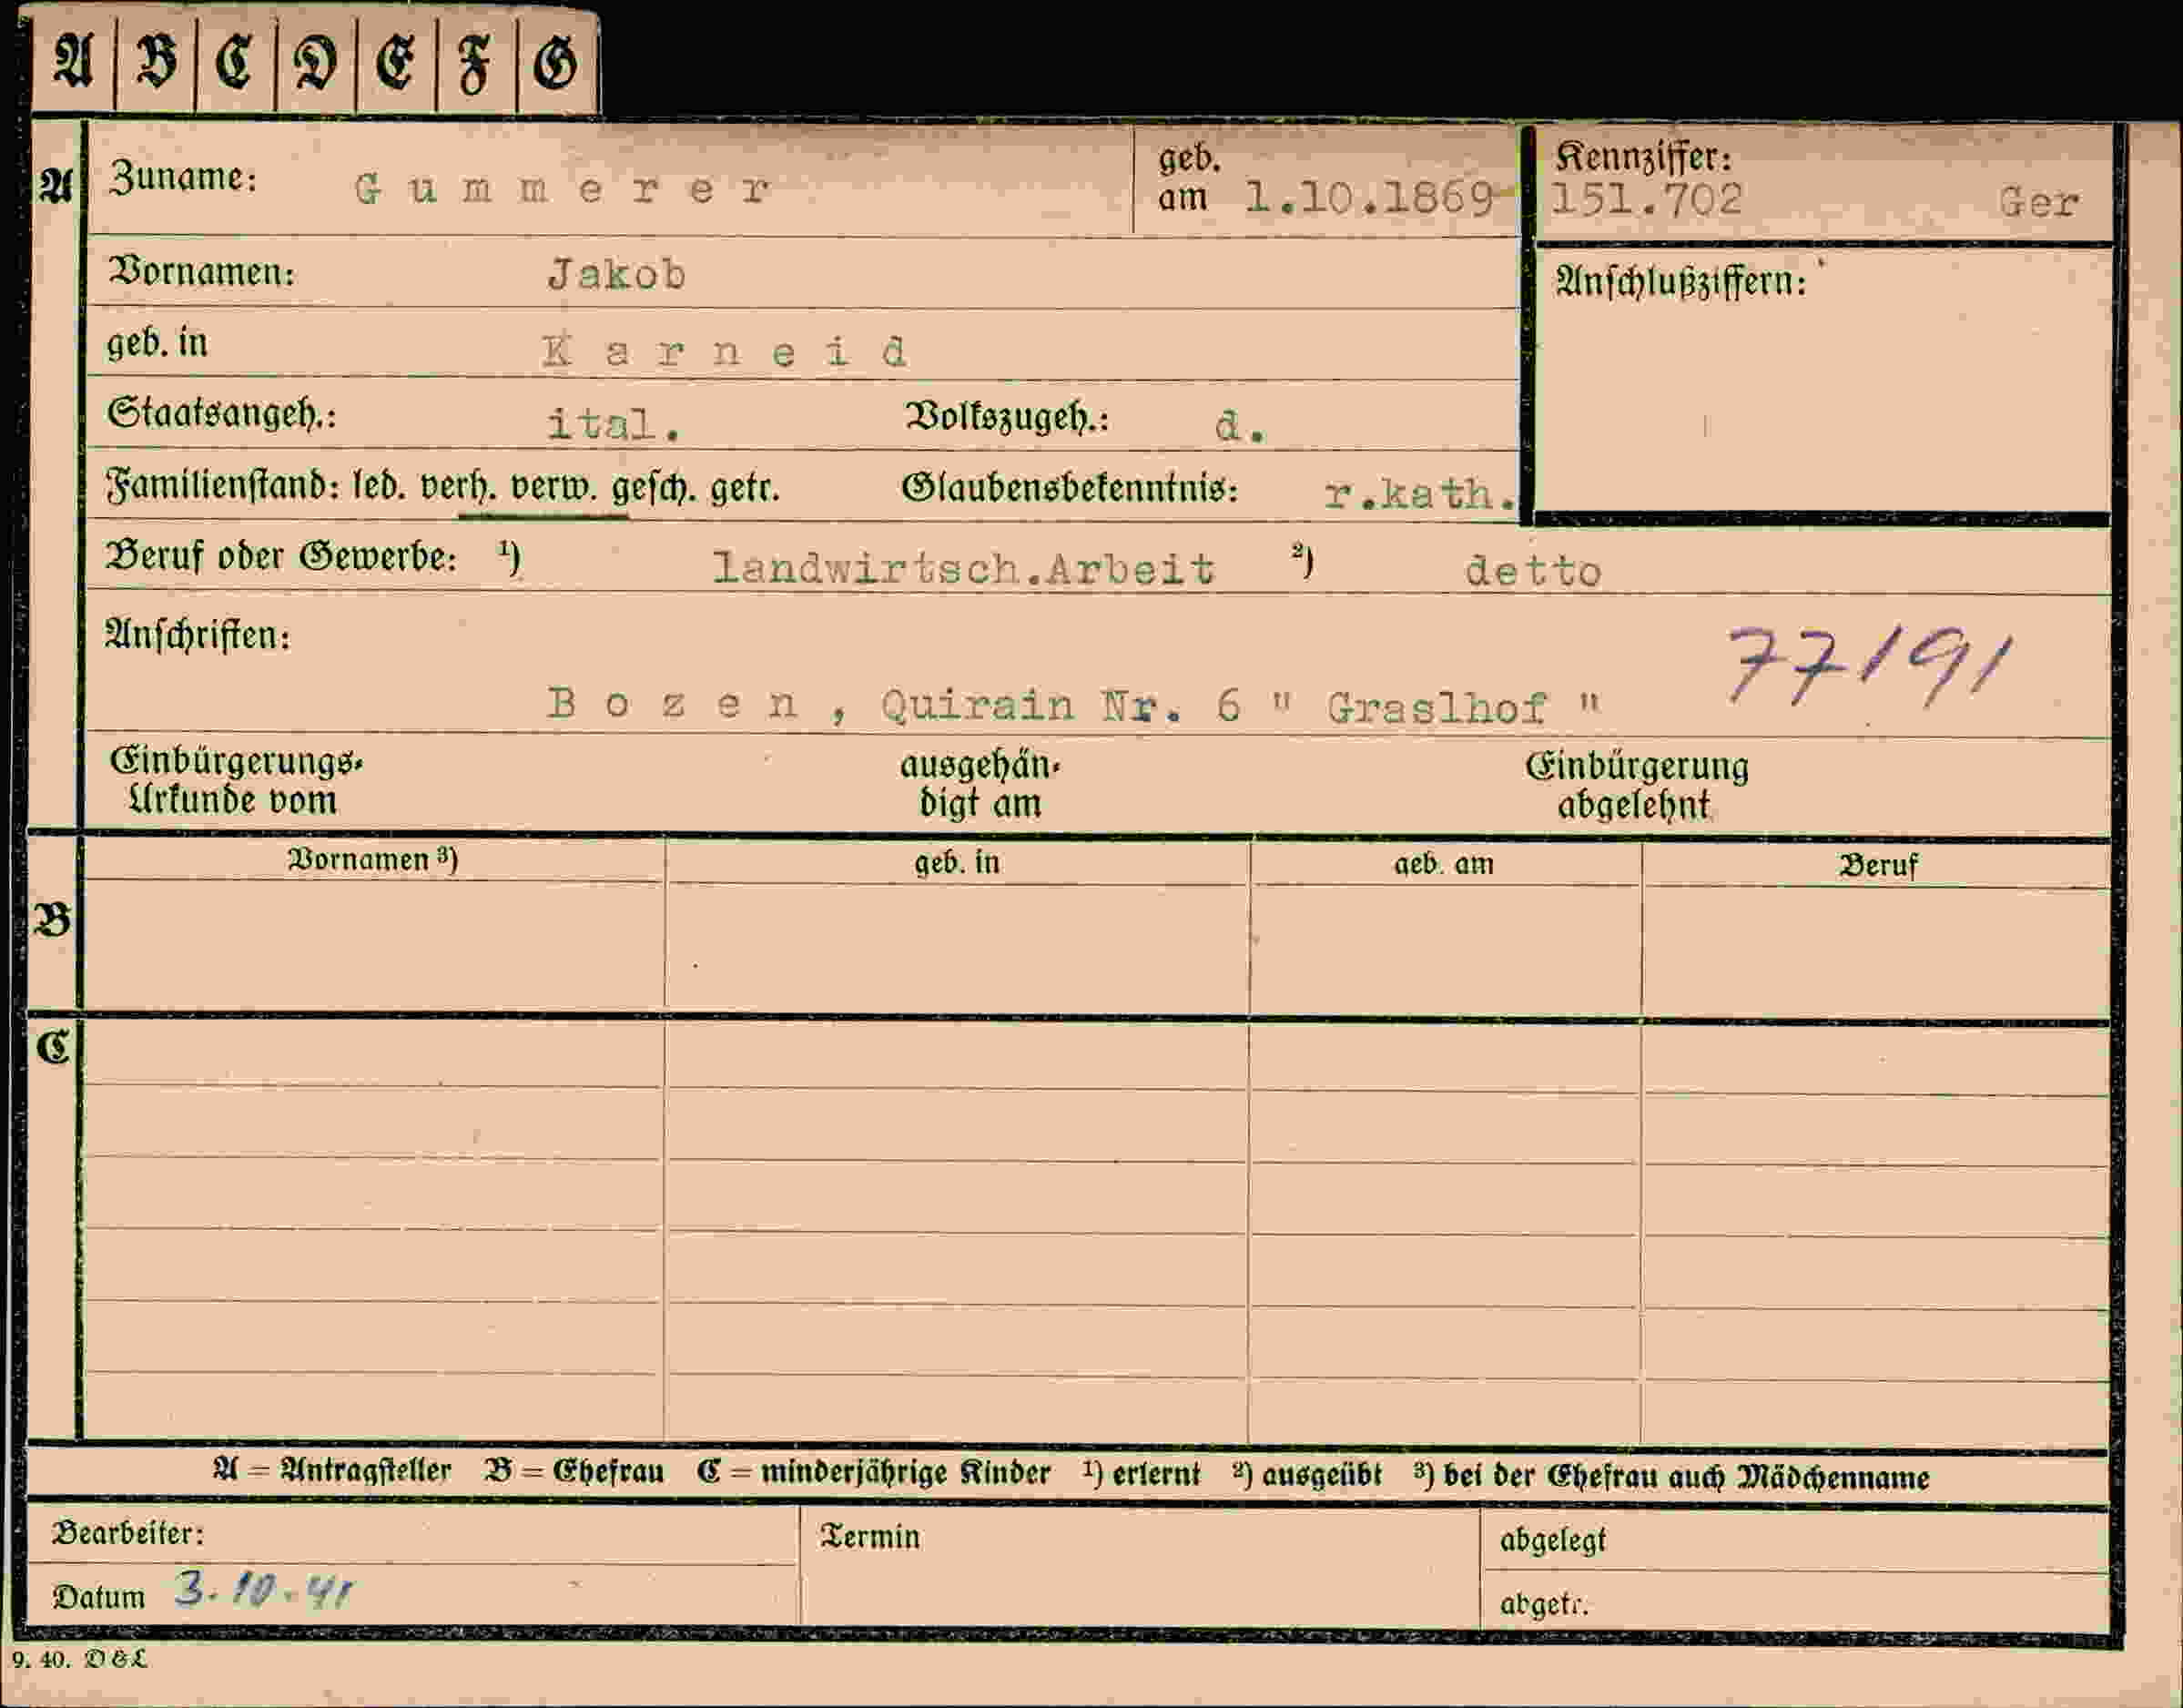 A B C D E F G
A Zuname: Gummerer geb. am 1.10.1869 Kennziffer: 151.702 Ger
Vornamen: Jakob Anschlußziffern:
geb. in Karneid
Staatsangeh.: ital. Volkszugeh.: d.
Familienstand: led. verh. verw. gesch. getr. Glaubensbekenntnis: r.kath.
Beruf oder Gewerbe: ¹) landwirtsch.Arbeit ²) detto
Anschriften: 77191
Bozen, Quirain Nr. 6 " Graslhof "
Einbürgerungs- ausgehän- Einbürgerung
Urkunde vom digt am abgelehnt
Vornamen ³) geb. in geb. am Beruf
B
C
A = Antragsteller B = Ehefrau C = minderjährige Kinder ¹) erlernt ²) ausgeübt ³) bei der Ehefrau auch Mädchenname
Bearbeiter: Termin abgelegt
Datum 3.10.41 abgetr.
9. 40. D & L